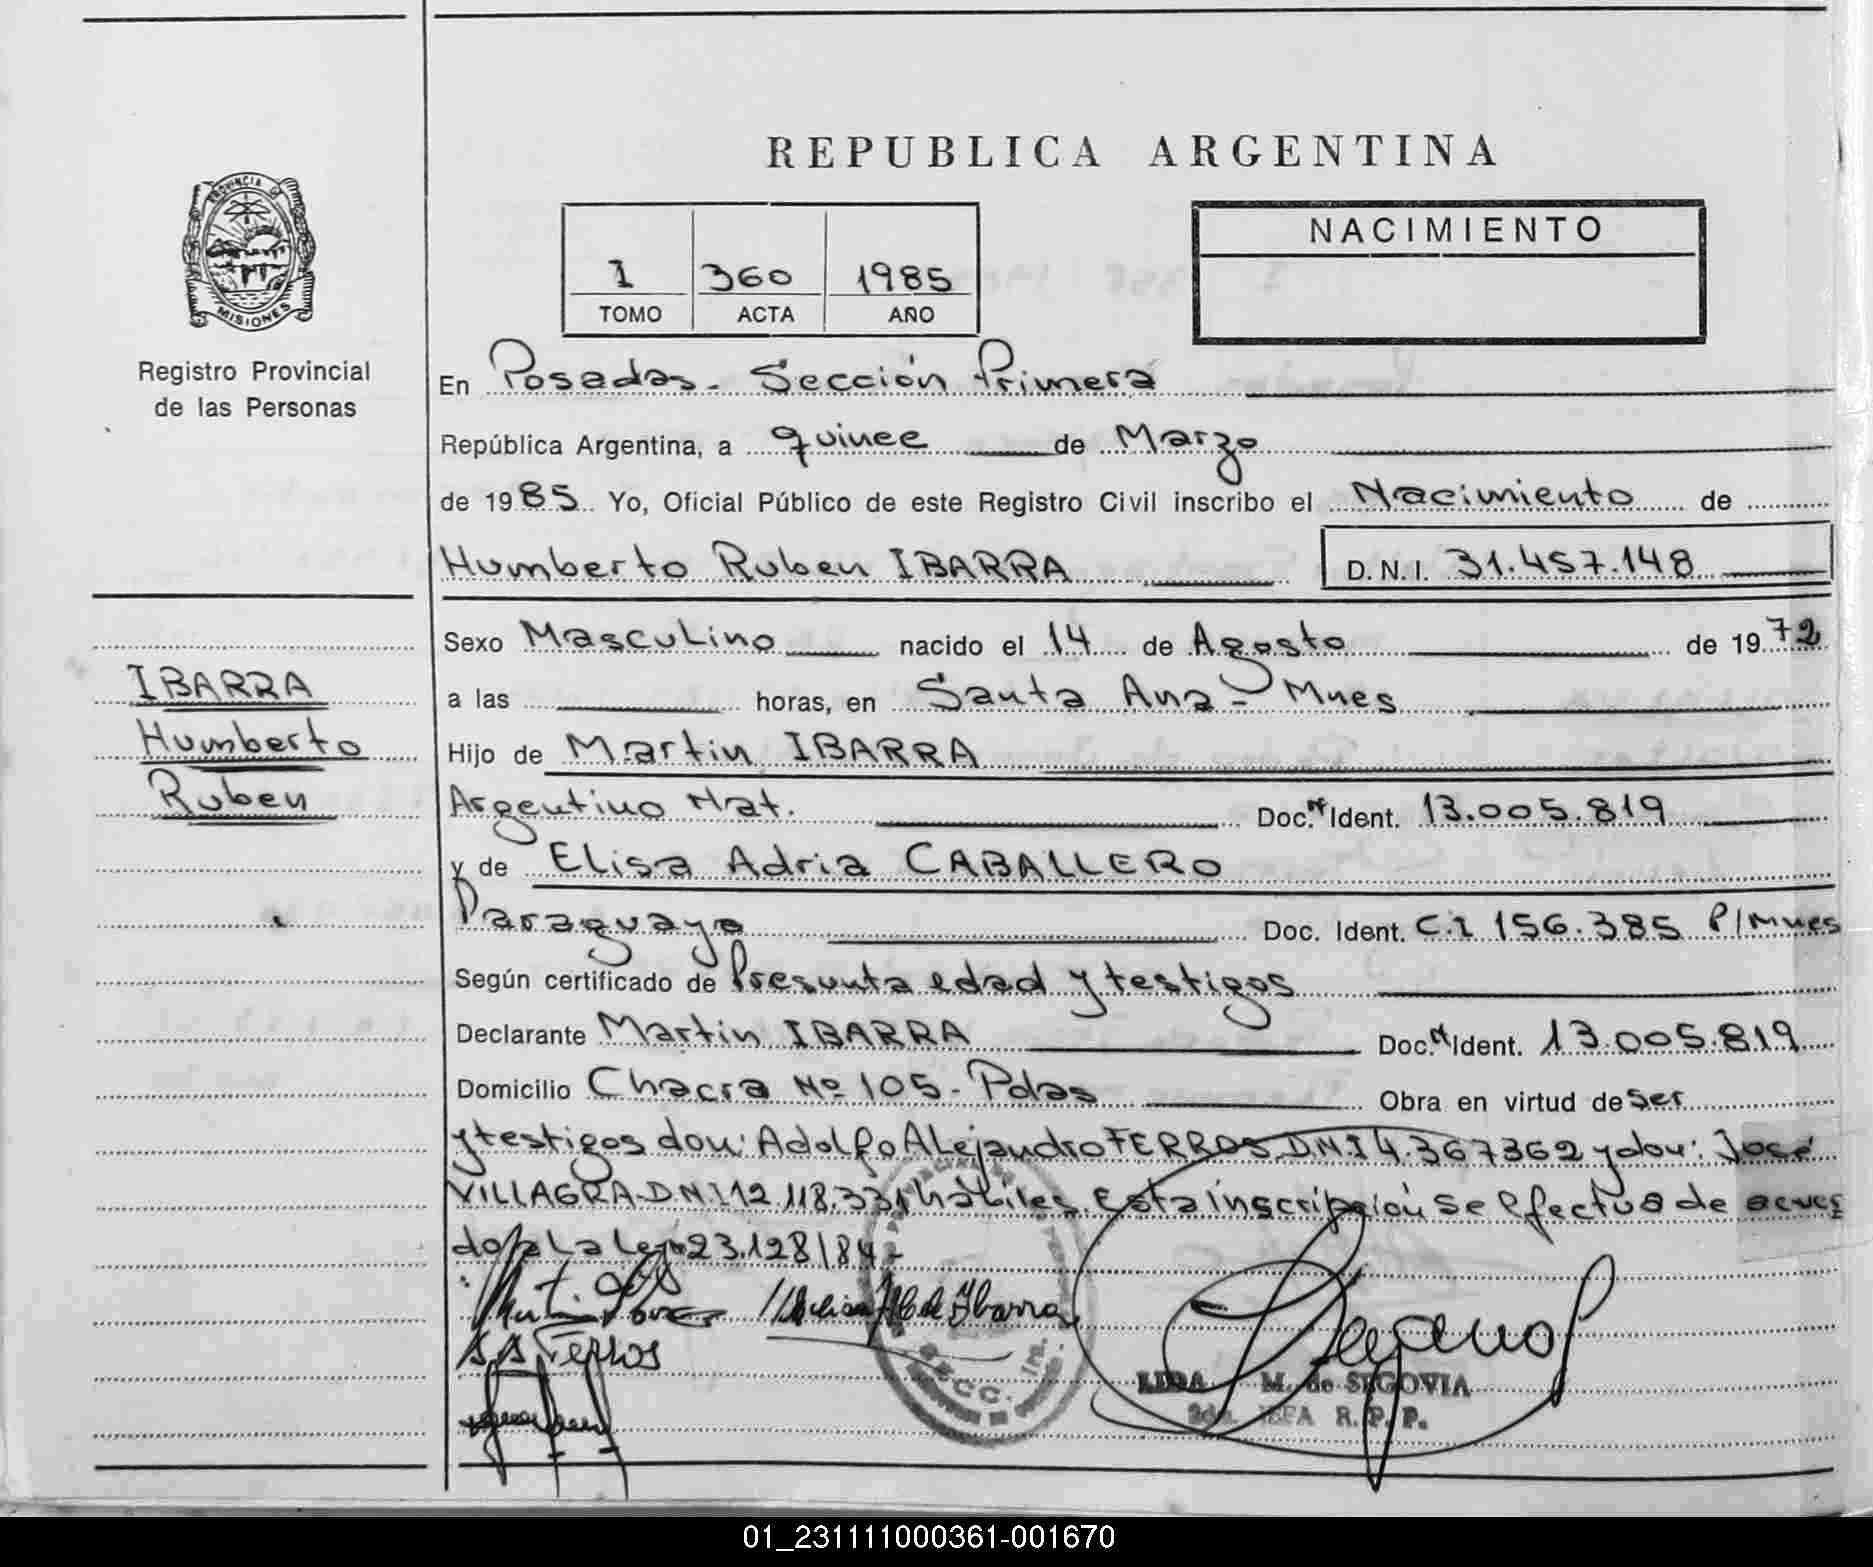 REPUBLICA ARGENTINA
PROVINCIA DE
MISIONES
Registro Provincial
de las Personas
1 360 1985
TOMO ACTA AÑO
NACIMIENTO
En Posadas - Sección Primera
República Argentina, a quince de Marzo
de 1985 Yo, Oficial Público de este Registro Civil inscribo el Nacimiento de
Humberto Ruben IBARRA D.N.I. 31.457.148
IBARRA
Humberto
Ruben
Sexo Masculino nacido el 14 de Agosto de 1972
a las horas, en Santa Ana - Mnes
Hijo de Martin IBARRA
Argentino Nat. Doc. Ident. 13.005.819
y de Elisa Adria CABALLERO
Paraguaya Doc. Ident. C.I 156.385 P/Mnes
Según certificado de Presunta edad y testigos
Declarante Martin IBARRA Doc. Ident. 13.005.819
Domicilio Chacra Nº 105 - Pdas Obra en virtud de Ser
y testigos don: Adolfo Alejandro FERROS D.N.I 4.367362 y don: José
VILLAGRA - D.N.I 12.118.331 hábiles. Esta inscripción se efectua de acuer
do a la Ley 23.128/84 -
A A Ferros
de Ibarra
SECC.
LIDA M. de SEGOVIA
2da. JEFA R. P. P.
01_231111000361-001670